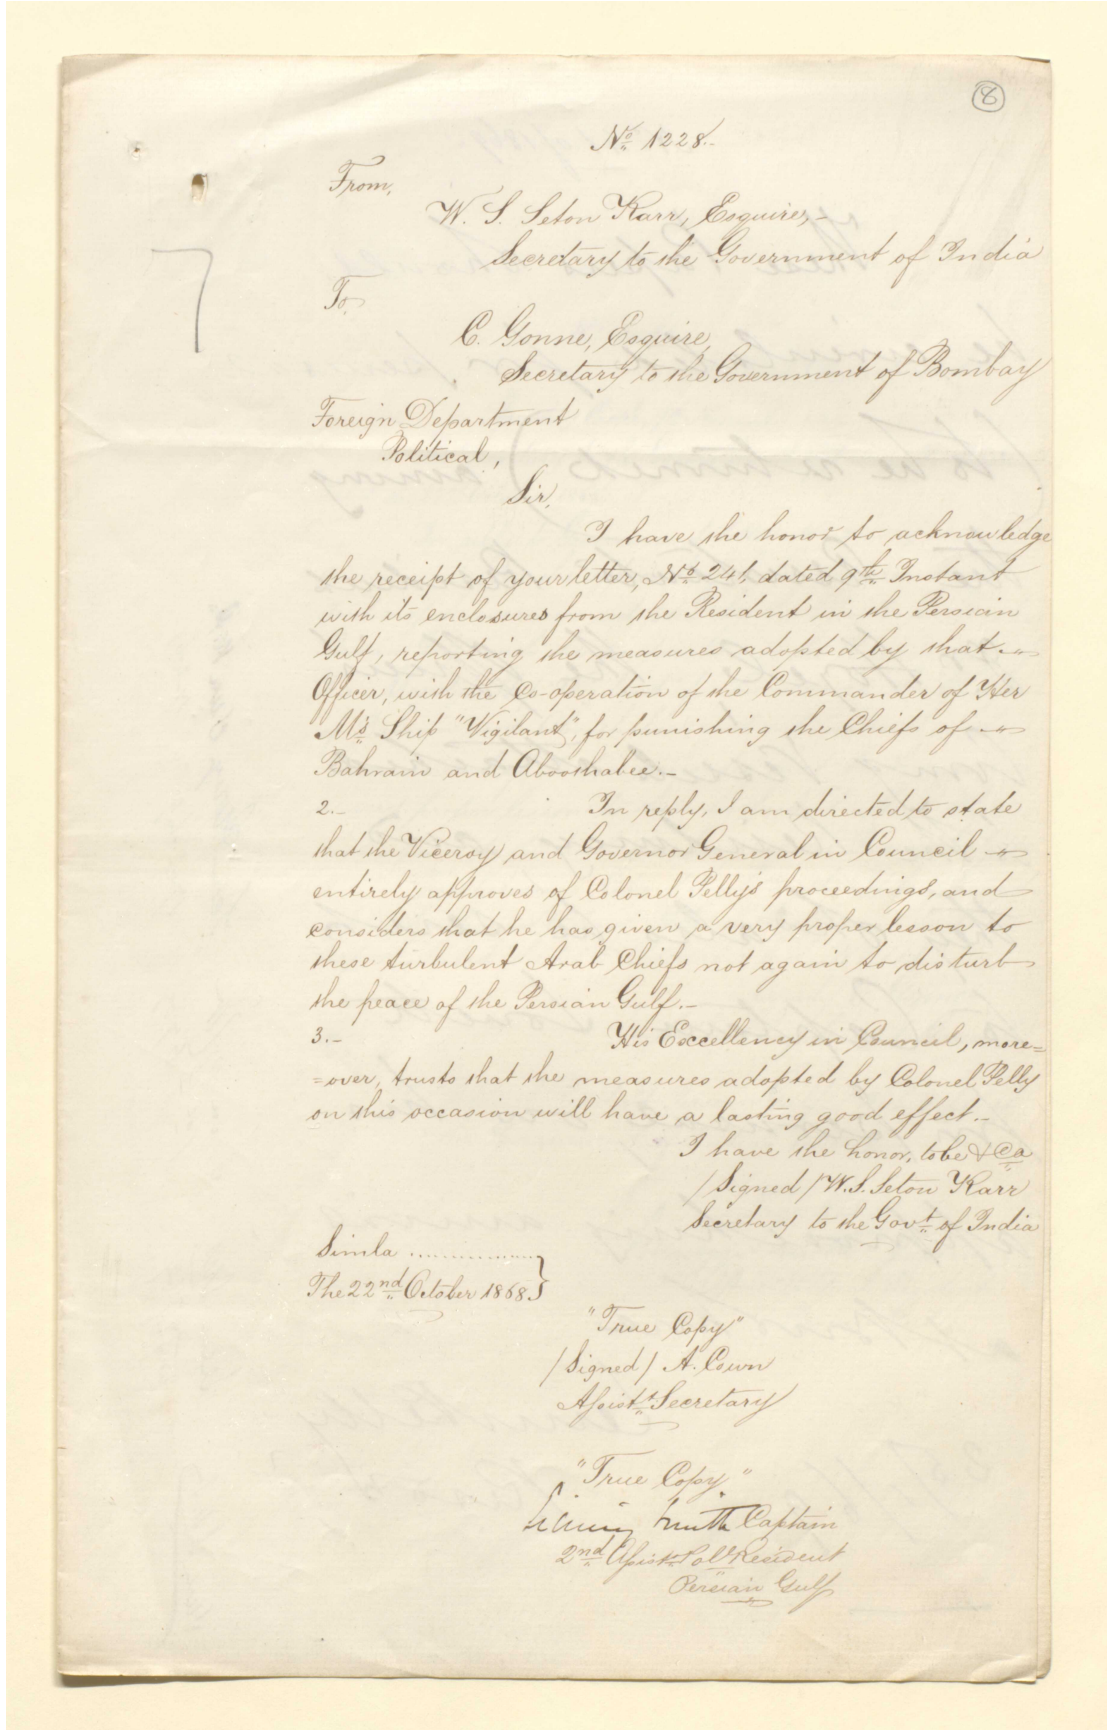 8
No. 1228.-
From,
W. S. Seton Karr, Esquire,-
Secretary to the Government of India
To,
C. Gonne, Esquire,
Secretary to the Government of Bombay
Foreign Department
Political,
Sir,
I have the honor to acknowledge
the receipt of your letter, No. 241, dated 9th Instant
with its enclosures from the Resident in the Persian
Gulf, reporting the measures adopted by that
Officer, with the Co-operation of the Commander of Her
M's Ship "Vigilant", for punishing the Chiefs of
Bahrain and Abooshabee.-
2.- In reply, I am directed to state
that the Viceroy and Governor General in Council
entirely approves of Colonel Pelly's proceedings, and
considers that he has given a very proper lesson to
these turbulent Arab Chiefs not again to disturb
the peace of the Persian Gulf.-
3.- His Excellency in Council, more=
=over, trusts that the measures adopted by Colonel Pelly
on this occasion will have a lasting good effect.-
I have the honor, to be &ca
/Signed/ W. S. Seton Karr
Secretary to the Govt. of India
Simla ................}
The 22nd October 1868}
"True Copy"
/Signed/ A. Cown
Assistt. Secretary
"True Copy"
Smith Captain
2nd Assistt. Poll. Resident
Persian Gulf